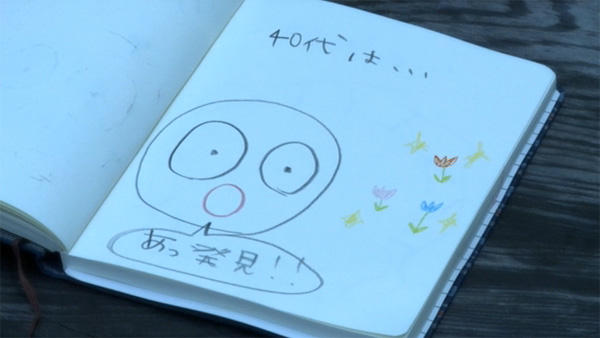 40代は、、、
あっ発見!!